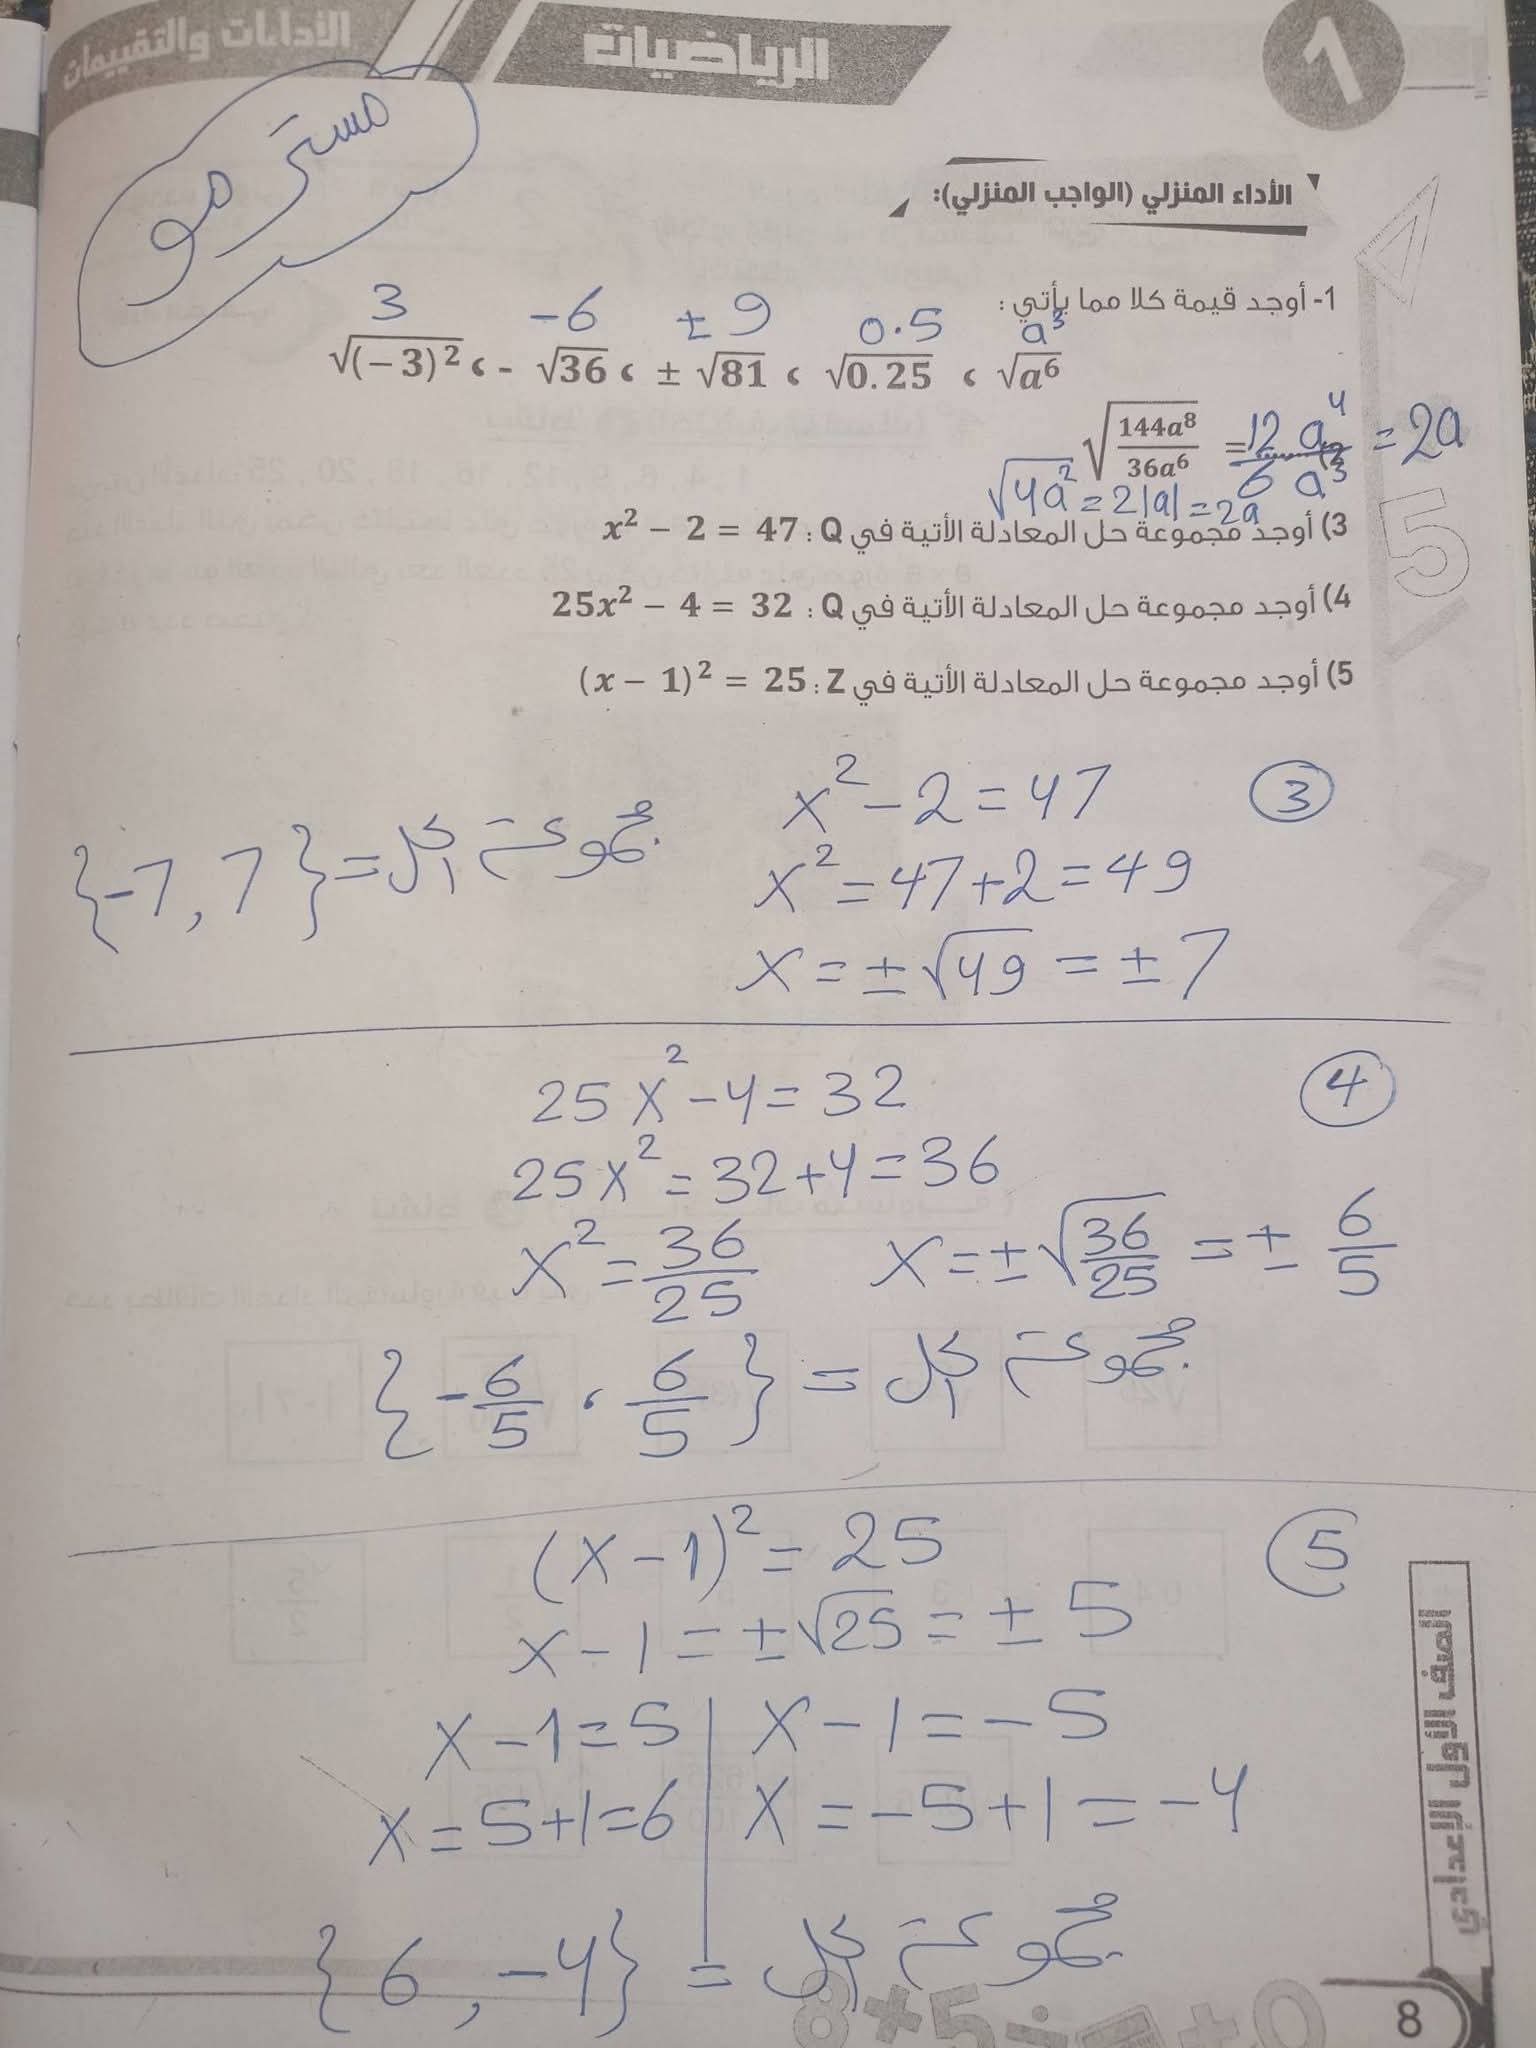 الأداءات والتقييمات
الرياضيات
1
مستر مو
الأداء المنزلي (الواجب المنزلي):
1- أوجد قيمة كلا مما يأتي :
3   -6   ±9   0.5   a³
√(−3)² ، - √36 ، ± √81 ، √0.25 ، √a⁶
√(144a⁸/36a⁶) = 12 a⁴ / 6 a³ = 2a
√4a² = 2|a| = 2a
3) أوجد مجموعة حل المعادلة الأتية في Q : x² − 2 = 47
4) أوجد مجموعة حل المعادلة الأتية في Q : 25x² − 4 = 32
5) أوجد مجموعة حل المعادلة الأتية في Z : (x − 1)² = 25
③
x² − 2 = 47
x² = 47 + 2 = 49
x = ± √49 = ± 7
مجموعة الحل = {-7, 7}
④
25x² − 4 = 32
25x² = 32 + 4 = 36
x² = 36/25   x = ± √(36/25) = ± 6/5
مجموعة الحل = {-6/5 ، 6/5}
⑤
(x − 1)² = 25
x − 1 = ± √25 = ± 5
x − 1 = 5 | x − 1 = −5
x = 5 + 1 = 6 | x = −5 + 1 = −4
مجموعة الحل = {6, −4}
الصف الأول الإعدادي
8+5÷ ±0
8